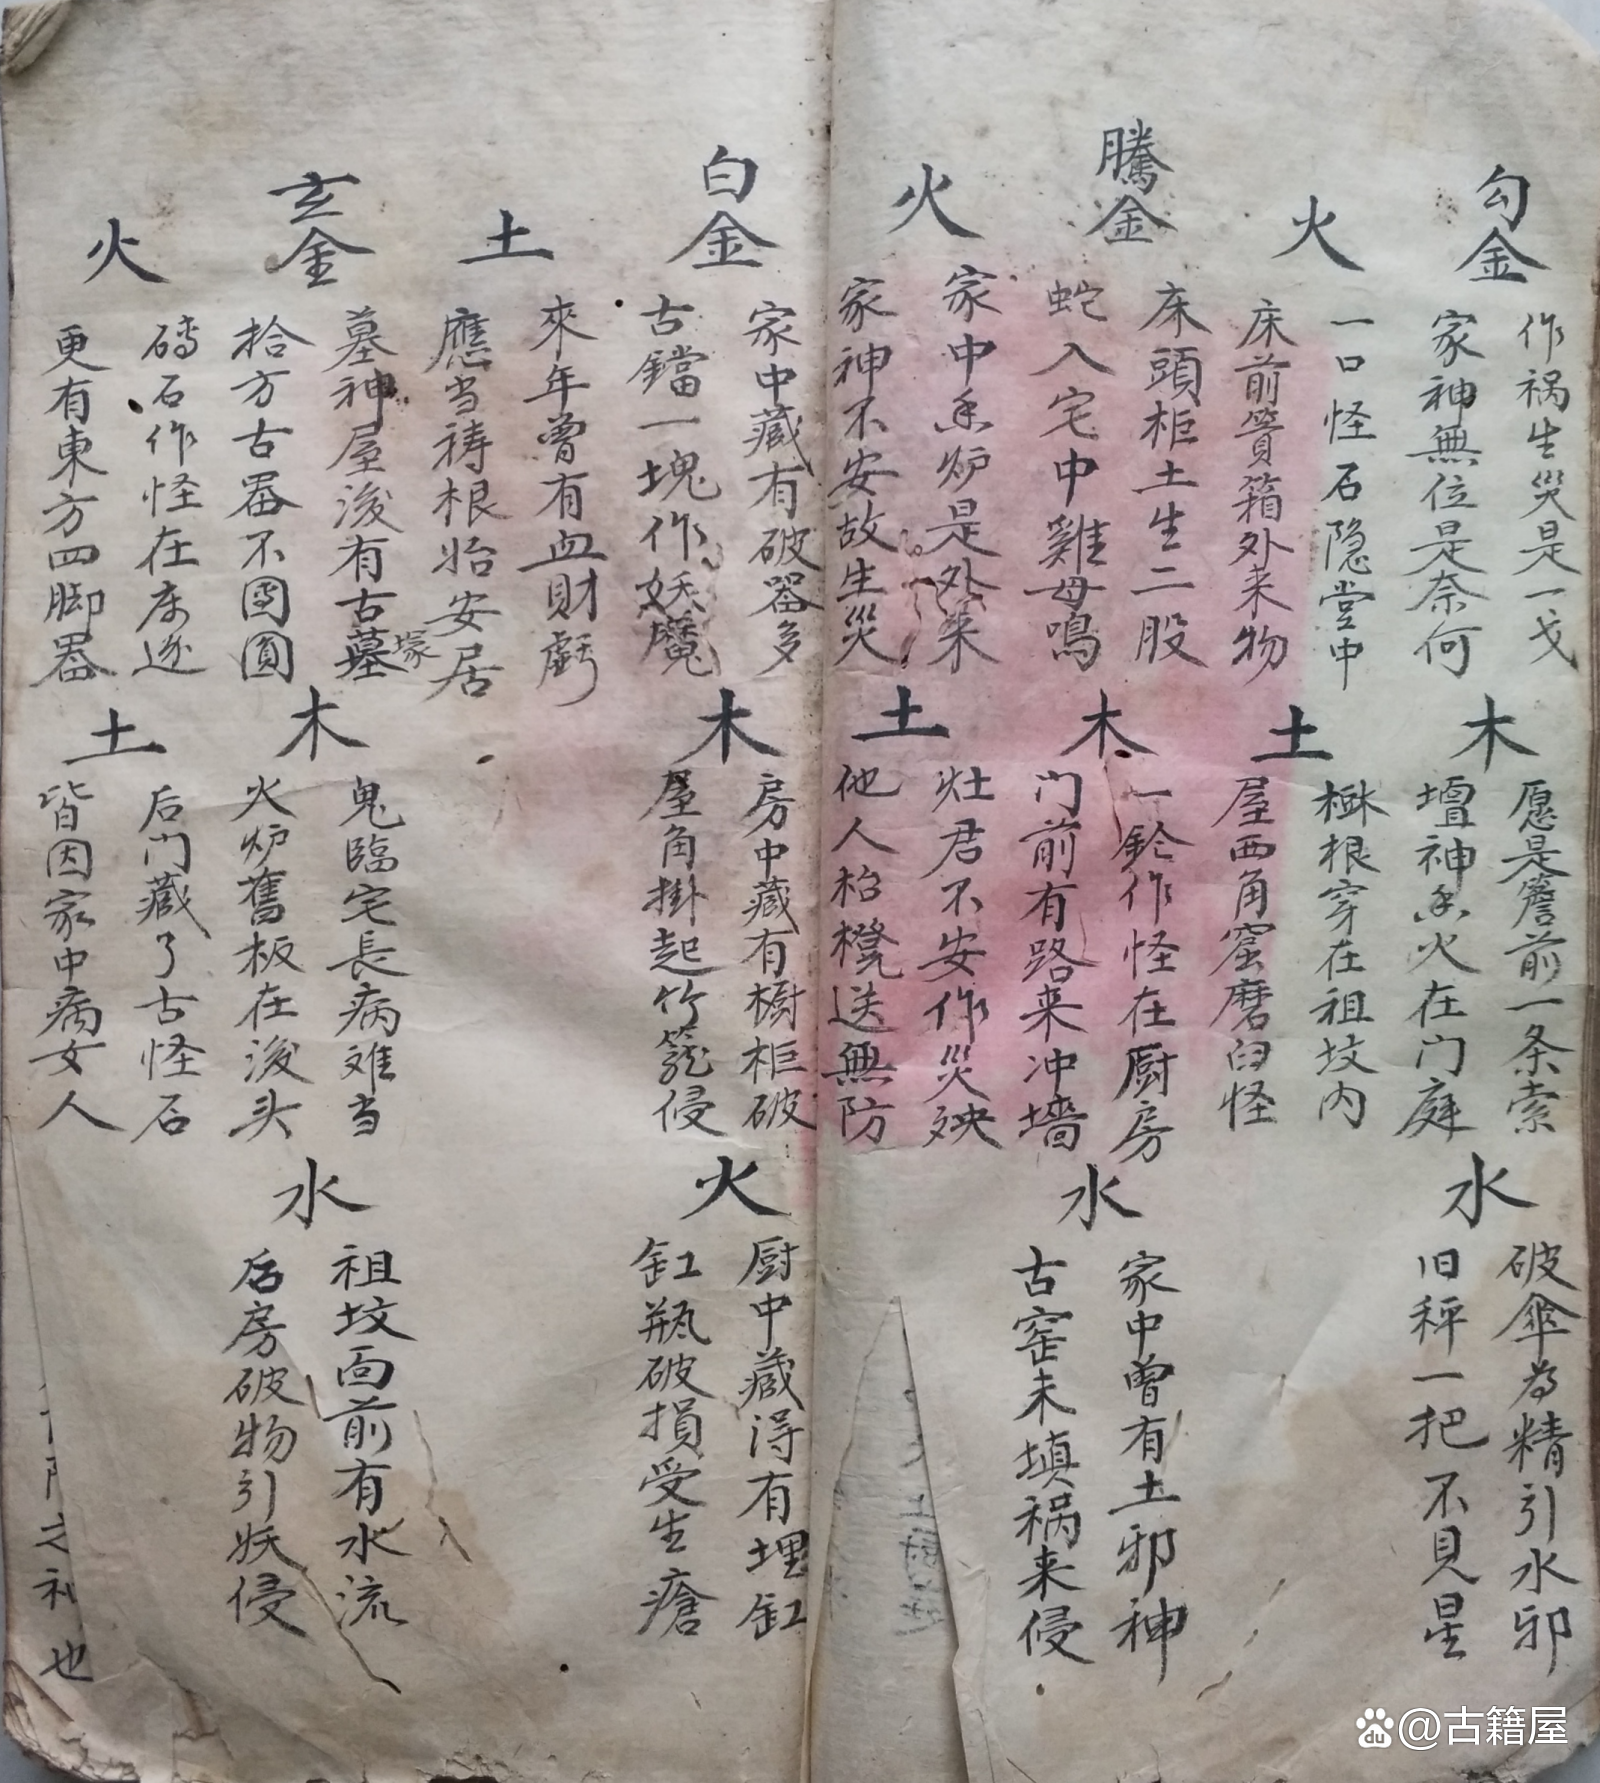 勾金
作祸生災是一戈
家神無位是奈何
木
愿是簷前一条索
壇神香火在门庭
水
破傘為精引水邪
旧秤一把不見星
火
一口怪石隐堂中
床前籫箱外来物
土
樹根穿在祖坟内
屋西角窟磨臼怪
騰金
床頭柜土生二股
蛇入宅中雞母鳴
木
一鈴作怪在厨房
门前有路来冲墻
水
家中曾有土邪神
古窑未填祸来侵
火
家中香炉是外来
家神不安故生災
土
灶君不安作災殃
他人枱櫈送無防
白金
家中藏有破器多
古鐺一塊作妖魔
木
房中藏有橱柜破
屋角掛起竹籠侵
火
厨中藏淂有埋缸
缸瓶破損受生瘡
土
來年曾有血財虧
應当祷根始安居
玄金
墓神屋後有古墓塚
拾方古器不團圓
木
鬼臨宅長病难当
火炉舊板在後头
水
祖坟面前有水流
后房破物引妖侵
火
磚石作怪在床边
更有東方四脚器
土
后门藏了古怪石
皆因家中病女人
之礼也
@古籍屋